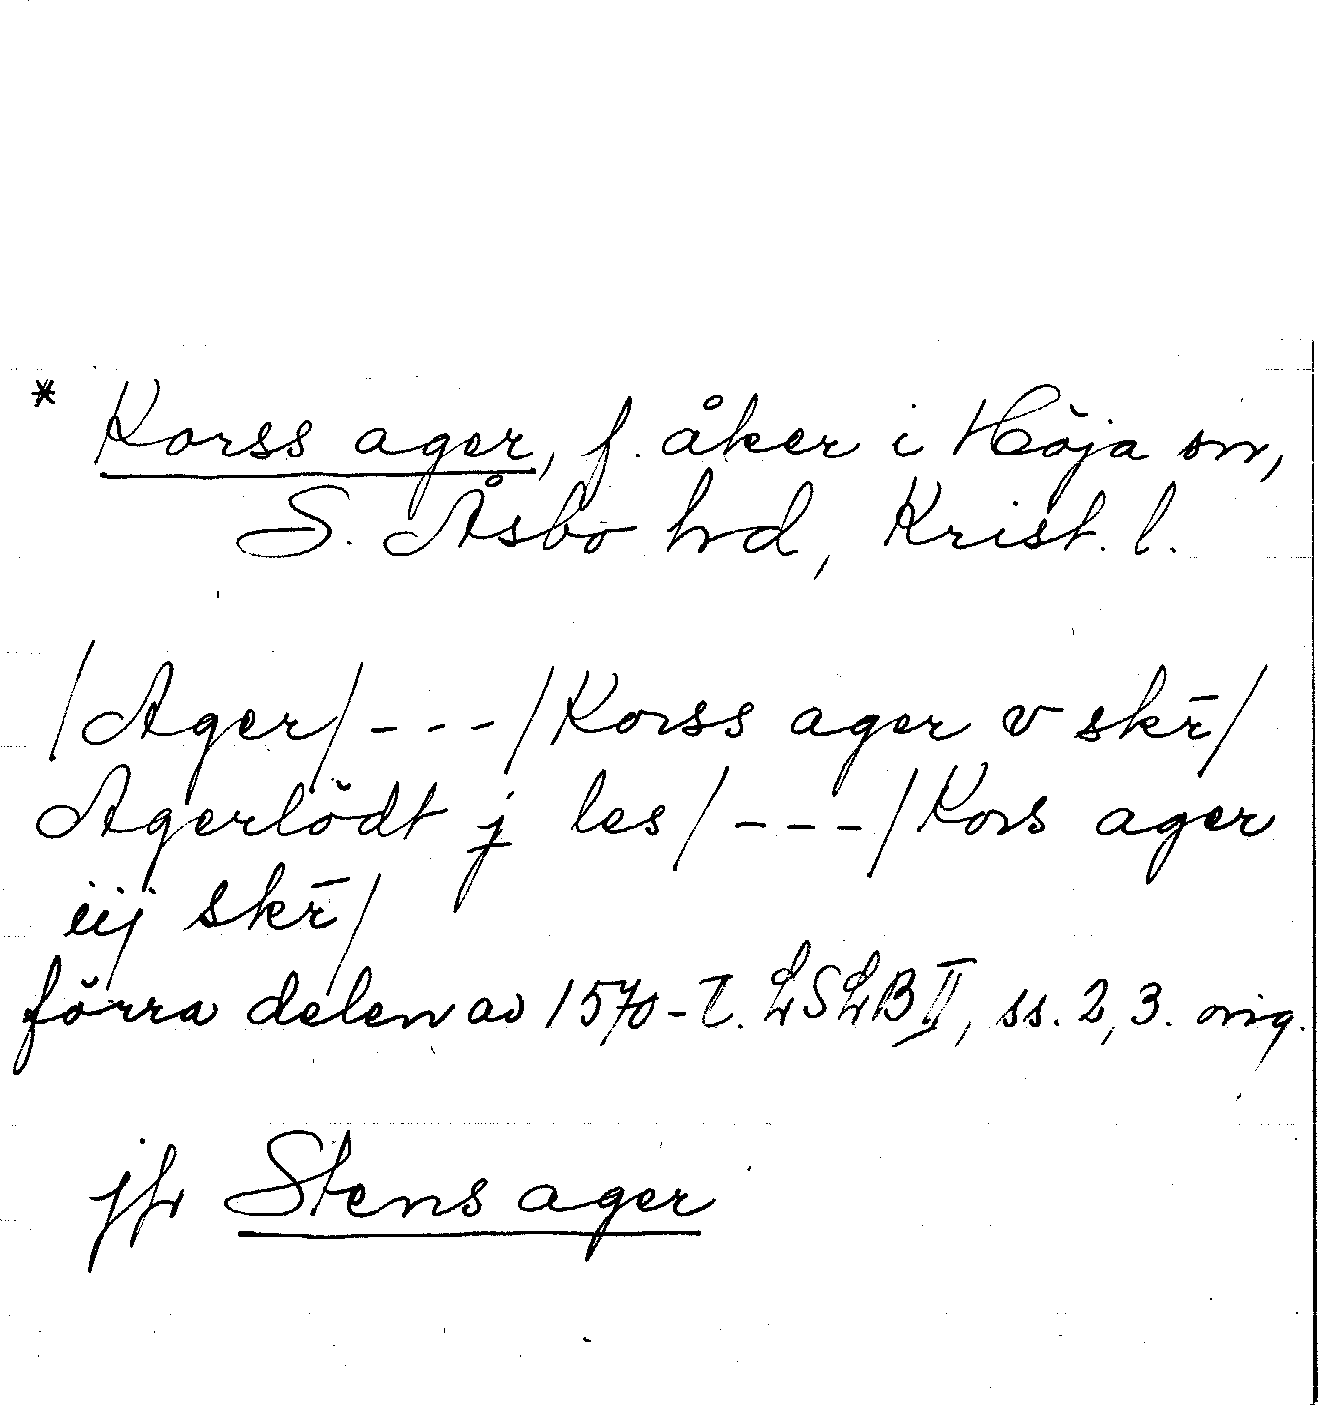 * Korss ager, f. åker i Höja sn,
S. Åsbo hrd, Krist. l.
/Ager/---/Korss ager v skr̄/
Agerlödt j les/---/Kors ager
iij skr̄/
förra delen av 1570-t. LSLB II, ss. 2, 3. orig.
jfr Stens ager